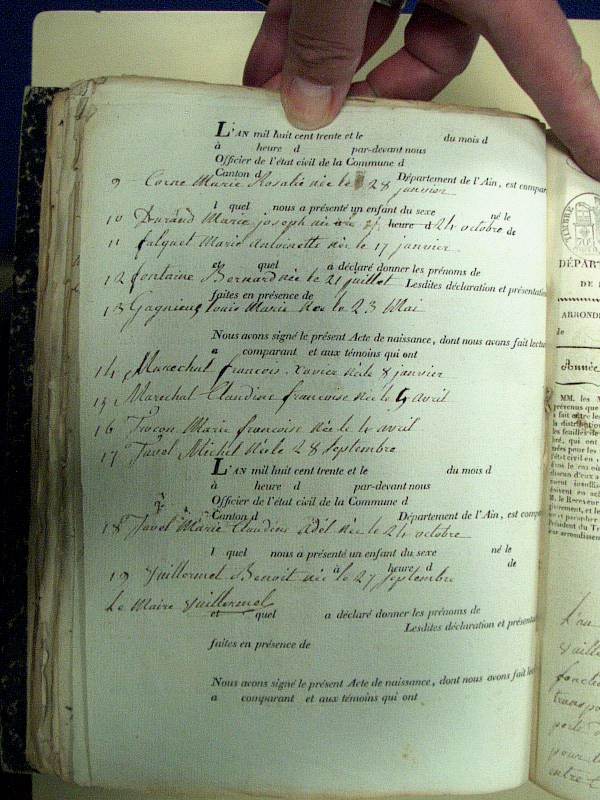 L'AN mil huit cent trente et le du mois d
à heure d par-devant nous
Officier de l'état civil de la Commune d
Canton d Département de l'Ain, est compar
9 Corne Marie Rosalie née le 28 janvier
l quel nous a présenté un enfant du sexe né le
10 Durand Marie joseph née le heure d 24 octobre de
11 falquet Marie antoinette née le 17 janvier
et quel a déclaré donner les prénoms de
12 fontaine Bernard née le 21 juillet Lesdites déclaration et présentation
13 Gagnieux Louis Marie née le 23 Mai
faites en présence de
Nous avons signé le présent Acte de naissance, dont nous avons fait lectur
a comparant et aux témoins qui ont
14 Marechal françois Xavier née le 8 janvier
15 Marechal Claudine françoise née le 5 avril
16 Marie françoise née le 4 avril
17 Tavel Michel née le 28 Septembre
L'AN mil huit cent trente et le du mois d
à heure d par-devant nous
Officier de l'état civil de la Commune d
Canton d Département de l'Ain, est compar
18 Tavel Marie Claudine née le 24 octobre
l quel nous a présenté un enfant du sexe né le
à heure d de
19 Vuillermet Benoit née le 27 Septembre
Le Maire Vuillermet
et quel a déclaré donner les prénoms de
Lesdites déclaration et présentation
faites en présence de
Nous avons signé le présent Acte de naissance, dont nous avons fait lect
a comparant et aux témoins qui ont
TIMBRE
DÉPART
DE
ARRONDI
de
Année
MM. les M
prévenus que
L'an
Vuille
fonctio
transpo
porte d
pour l
entre l